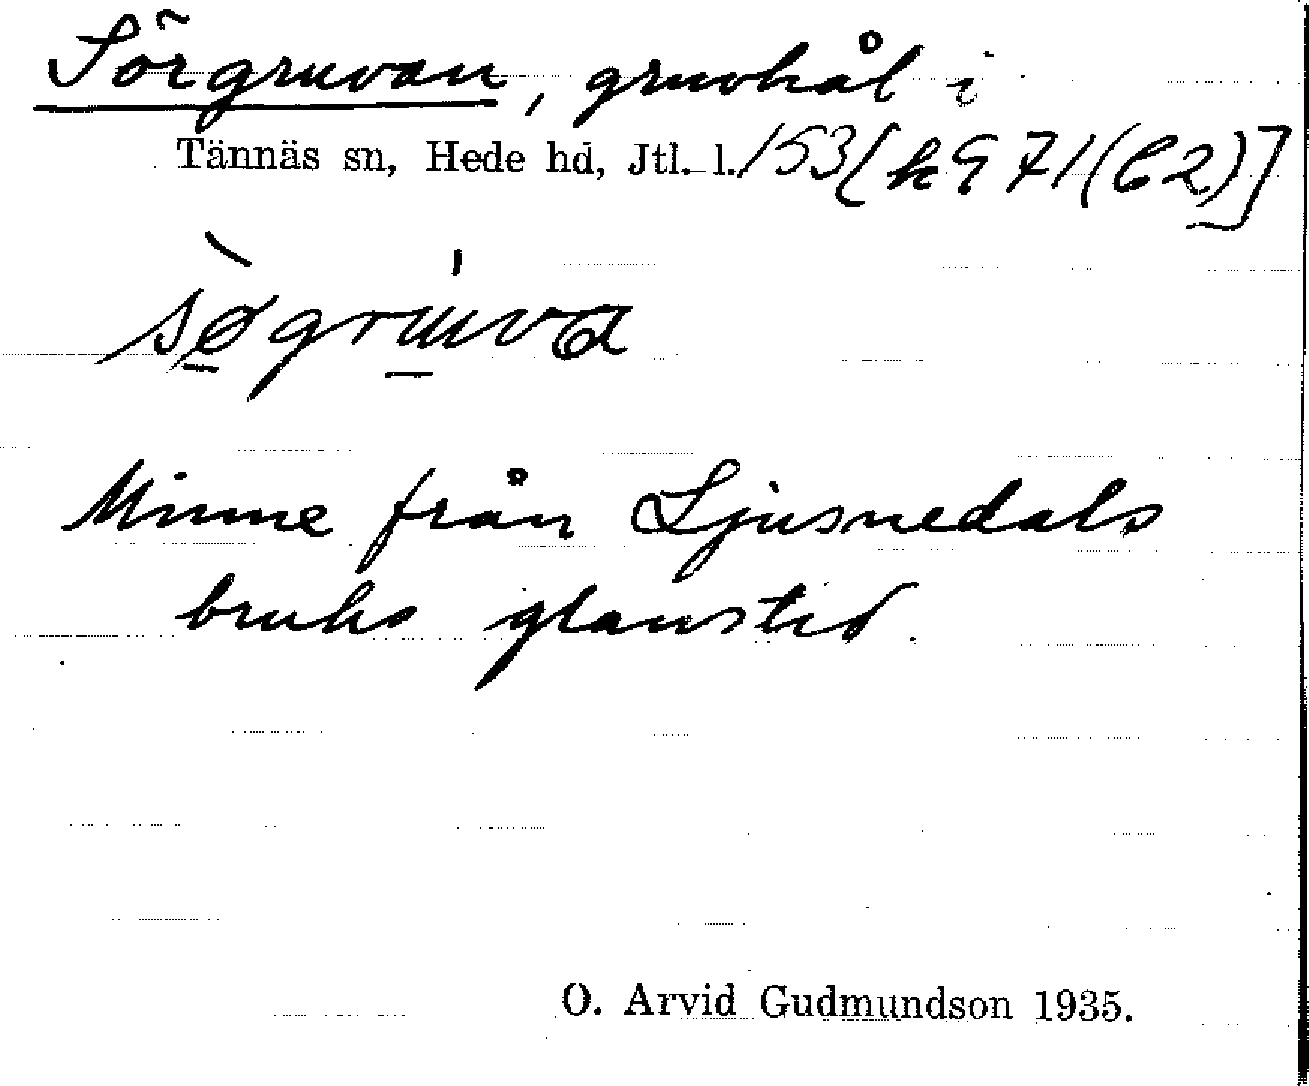 Sörgruvan, gruvhål i
Tännäs sn, Hede hd, Jtl. l. 153 [k 971 (C2)]
sø̱̀gru̱̍va
Minne från Ljusnedals
bruks glanstid.
O. Arvid Gudmundson 1935.